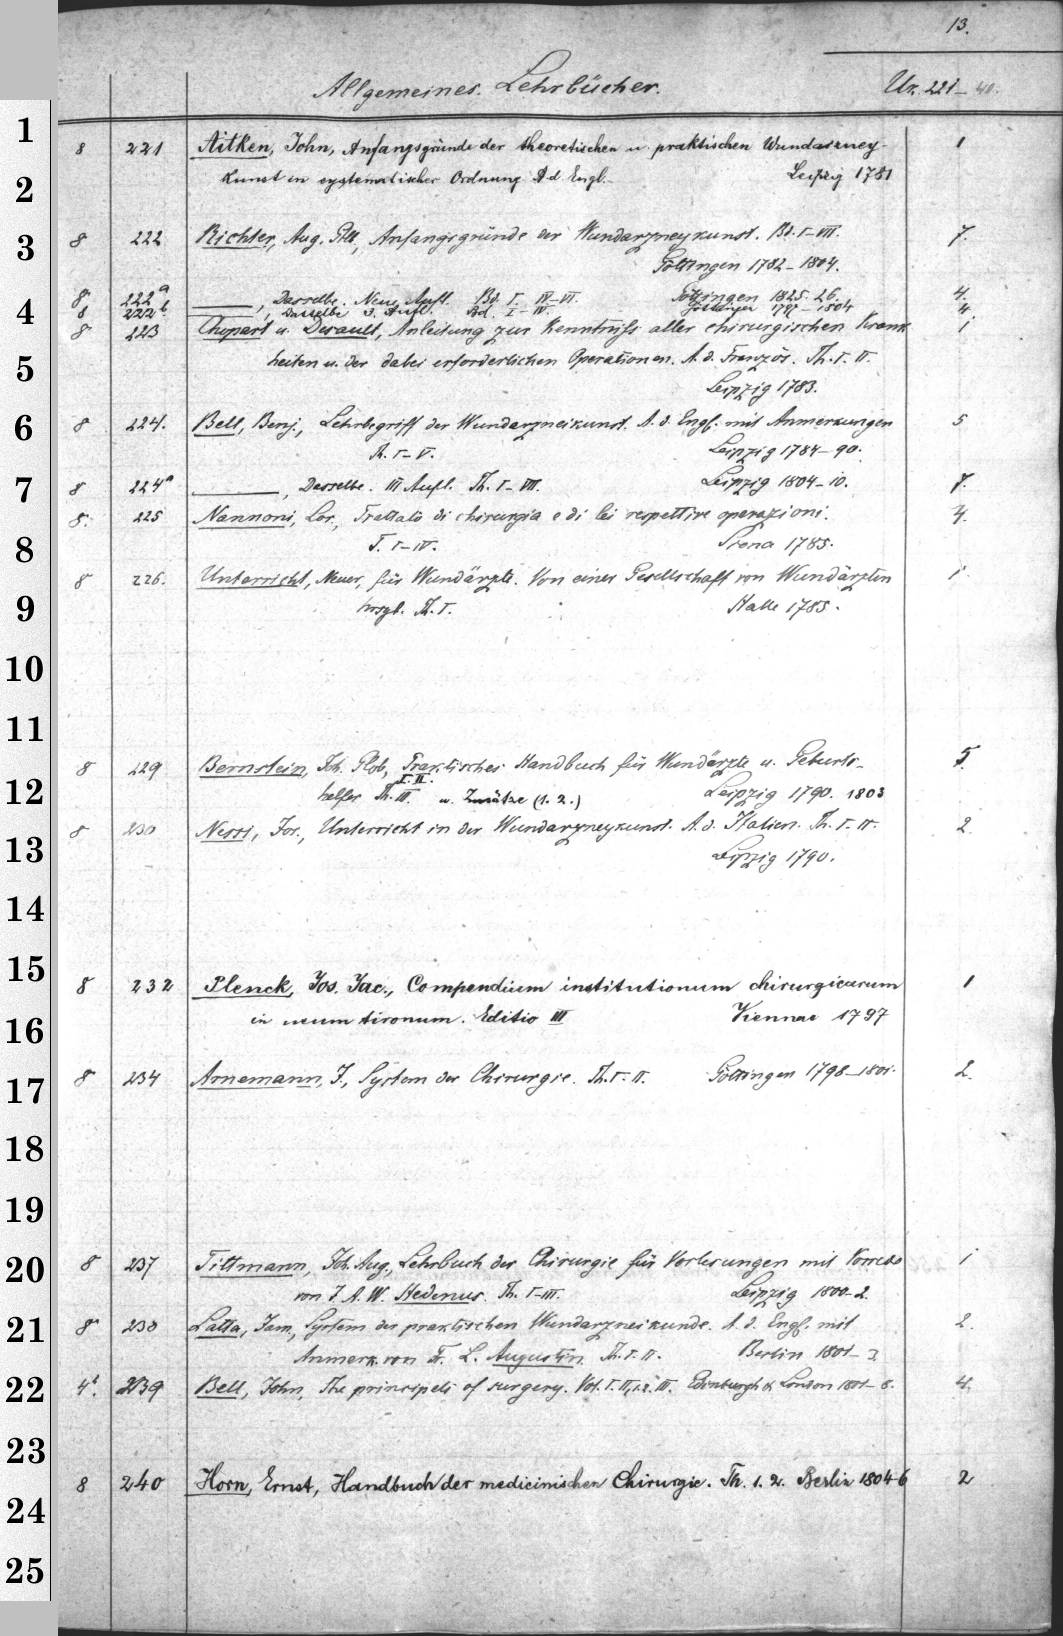 13.
Allgemeines. Lehrbücher. Nr. 221-40.
1
8 221 Aitken, John, Anfangsgründe der theoretischen u. praktischen Wundarzney- 1
2
kunst in systematischer Ordnung A d. Engl. Leipzig 1781
3
8 222 Richter, Aug. Gttl., Anfangsgründe der Wundarzneykunst. Bd. I-VII. 7.
Göttingen 1782-1804.
8. 222a ———, Dasselbe. Neue Aufl. Bd. I. IV-VI. Göttingen 1825-26. 4.
4
8 222b ———, Dasselbe 3. Aufl. Bd. I-IV. Göttingen 1799-1804 4
8 223 Chopart u. Desault, Anleitung zur Kenntniss aller chirurgischen Krank 1
5
heiten u. der dabei erforderlichen Operationen. A. d. Französ. Th. I. II.
Leipzig 1783.
6
8 224. Bell, Benj., Lehrbegriff der Wundarzneikunst. A. d. Engl. mit Anmerkungen 5
Th. I-V. Leipzig 1784-90.
7
8 224a ———, Dasselbe. III Aufl. Th. I-VII. Leipzig 1804-10. 7.
8. 225 Nannoni, Lor., Trattato di chirurgia e di lei respettive operazioni. 4.
8
T. I-IV. Siena 1785.
8 226. Unterricht, Neuer, für Wundärzte. Von einer Gesellschaft von Wundärzten 1
9
hrsgb. Th. I. Halle 1785.
10
11
8 229 Bernstein, Joh. Gtlob, Praktisches Handbuch für Wundärzte u. Geburts- 5.
12
helfer Th. I. II. III. u. Zusätze (1. 2.) Leipzig 1790. 1803
8 230 Nessi, Jos., Unterricht in der Wundarzneykunst. A. d. Italien. Th. I-II. 2.
13
Leipzig 1790.
14
15
8 232 Plenck, Jos. Jac., Compendium institutionum chirurgicarum 1
16
in usum tironum. Editio III Viennae 1797
17
8 234 Arnemann, J., System der Chirurgie. Th. I-II. Göttingen 1798-1801. 2.
18
19
20
8 237 Tittmann, Joh. Aug., Lehrbuch der Chirurgie für Vorlesungen mit Vorrede 1
von J. A. W. Hedenus. Th. I-III. Leipzig 1800-2.
21
8 238 Latta, Jam., System der praktischen Wundarzneikunde. A. d. Engl. mit 2.
Anmerk. von F. L. Augustin. Th. I. II. Berlin 1801-3
22
4t. 239 Bell, John, The principels of surgery. Vol. I. II,1.2. III. Edinburgh & London 1801-8. 4.
23
8 240 Horn, Ernst, Handbuch der medicinischen Chirurgie. Th. 1. 2. Berlin 1804 6 2
24
25